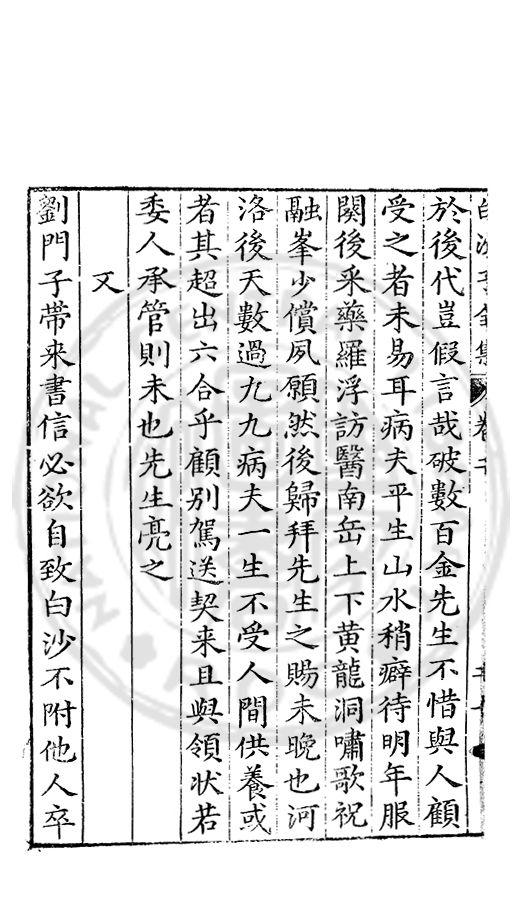 於後代豈假言哉破數百金先生不惜與人顧
受之者未易耳病夫平生山水稍癖待明年服
闋後采藥羅浮訪醫南岳上下黄龍洞嘯歌祝
融峯少償夙願然後歸拜先生之賜未晚也河
洛後天數過九九病夫一生不受人間供養或
者其超出六合乎顧别駕送契来且與領状若
委人承管則未也先生亮之
又
劉門子帶来書信必欲自致白沙不附他人卒